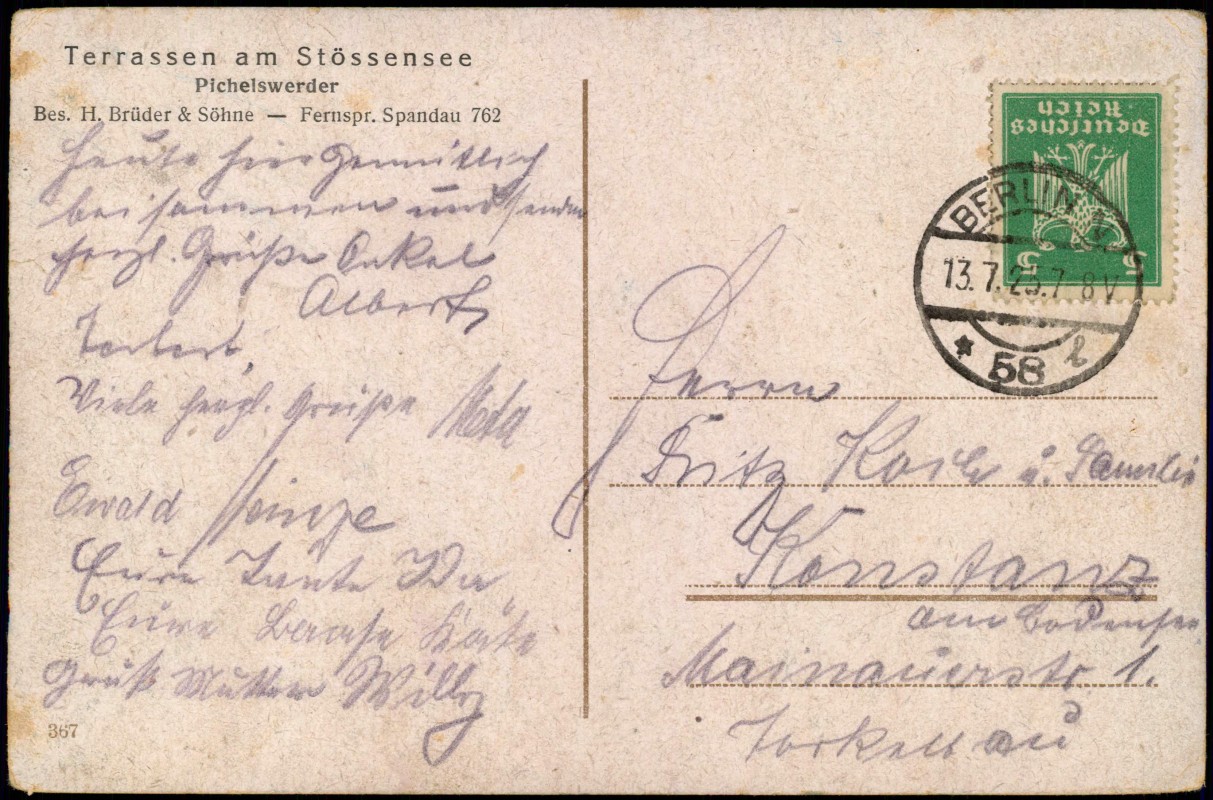 Terrassen am Stössensee
Pichelswerder
Bes. H. Brüder & Söhne — Fernspr. Spandau 762
Heute hier gemütlich
beisammen und senden
herzl. Grüße Onkel
Albert
Viele herzl. Grüße Meta
Ewald Heinze
Eure Tante
Eure Baase Käte
Gruß Mutter Willy
367
Deutsches
Reich
5 5
BERLIN
13.7.25.7-8V
* 58 l
Herrn
Fritz Koch u. Familie
Konstanz
am Bodensee
Mainauerstr 1.